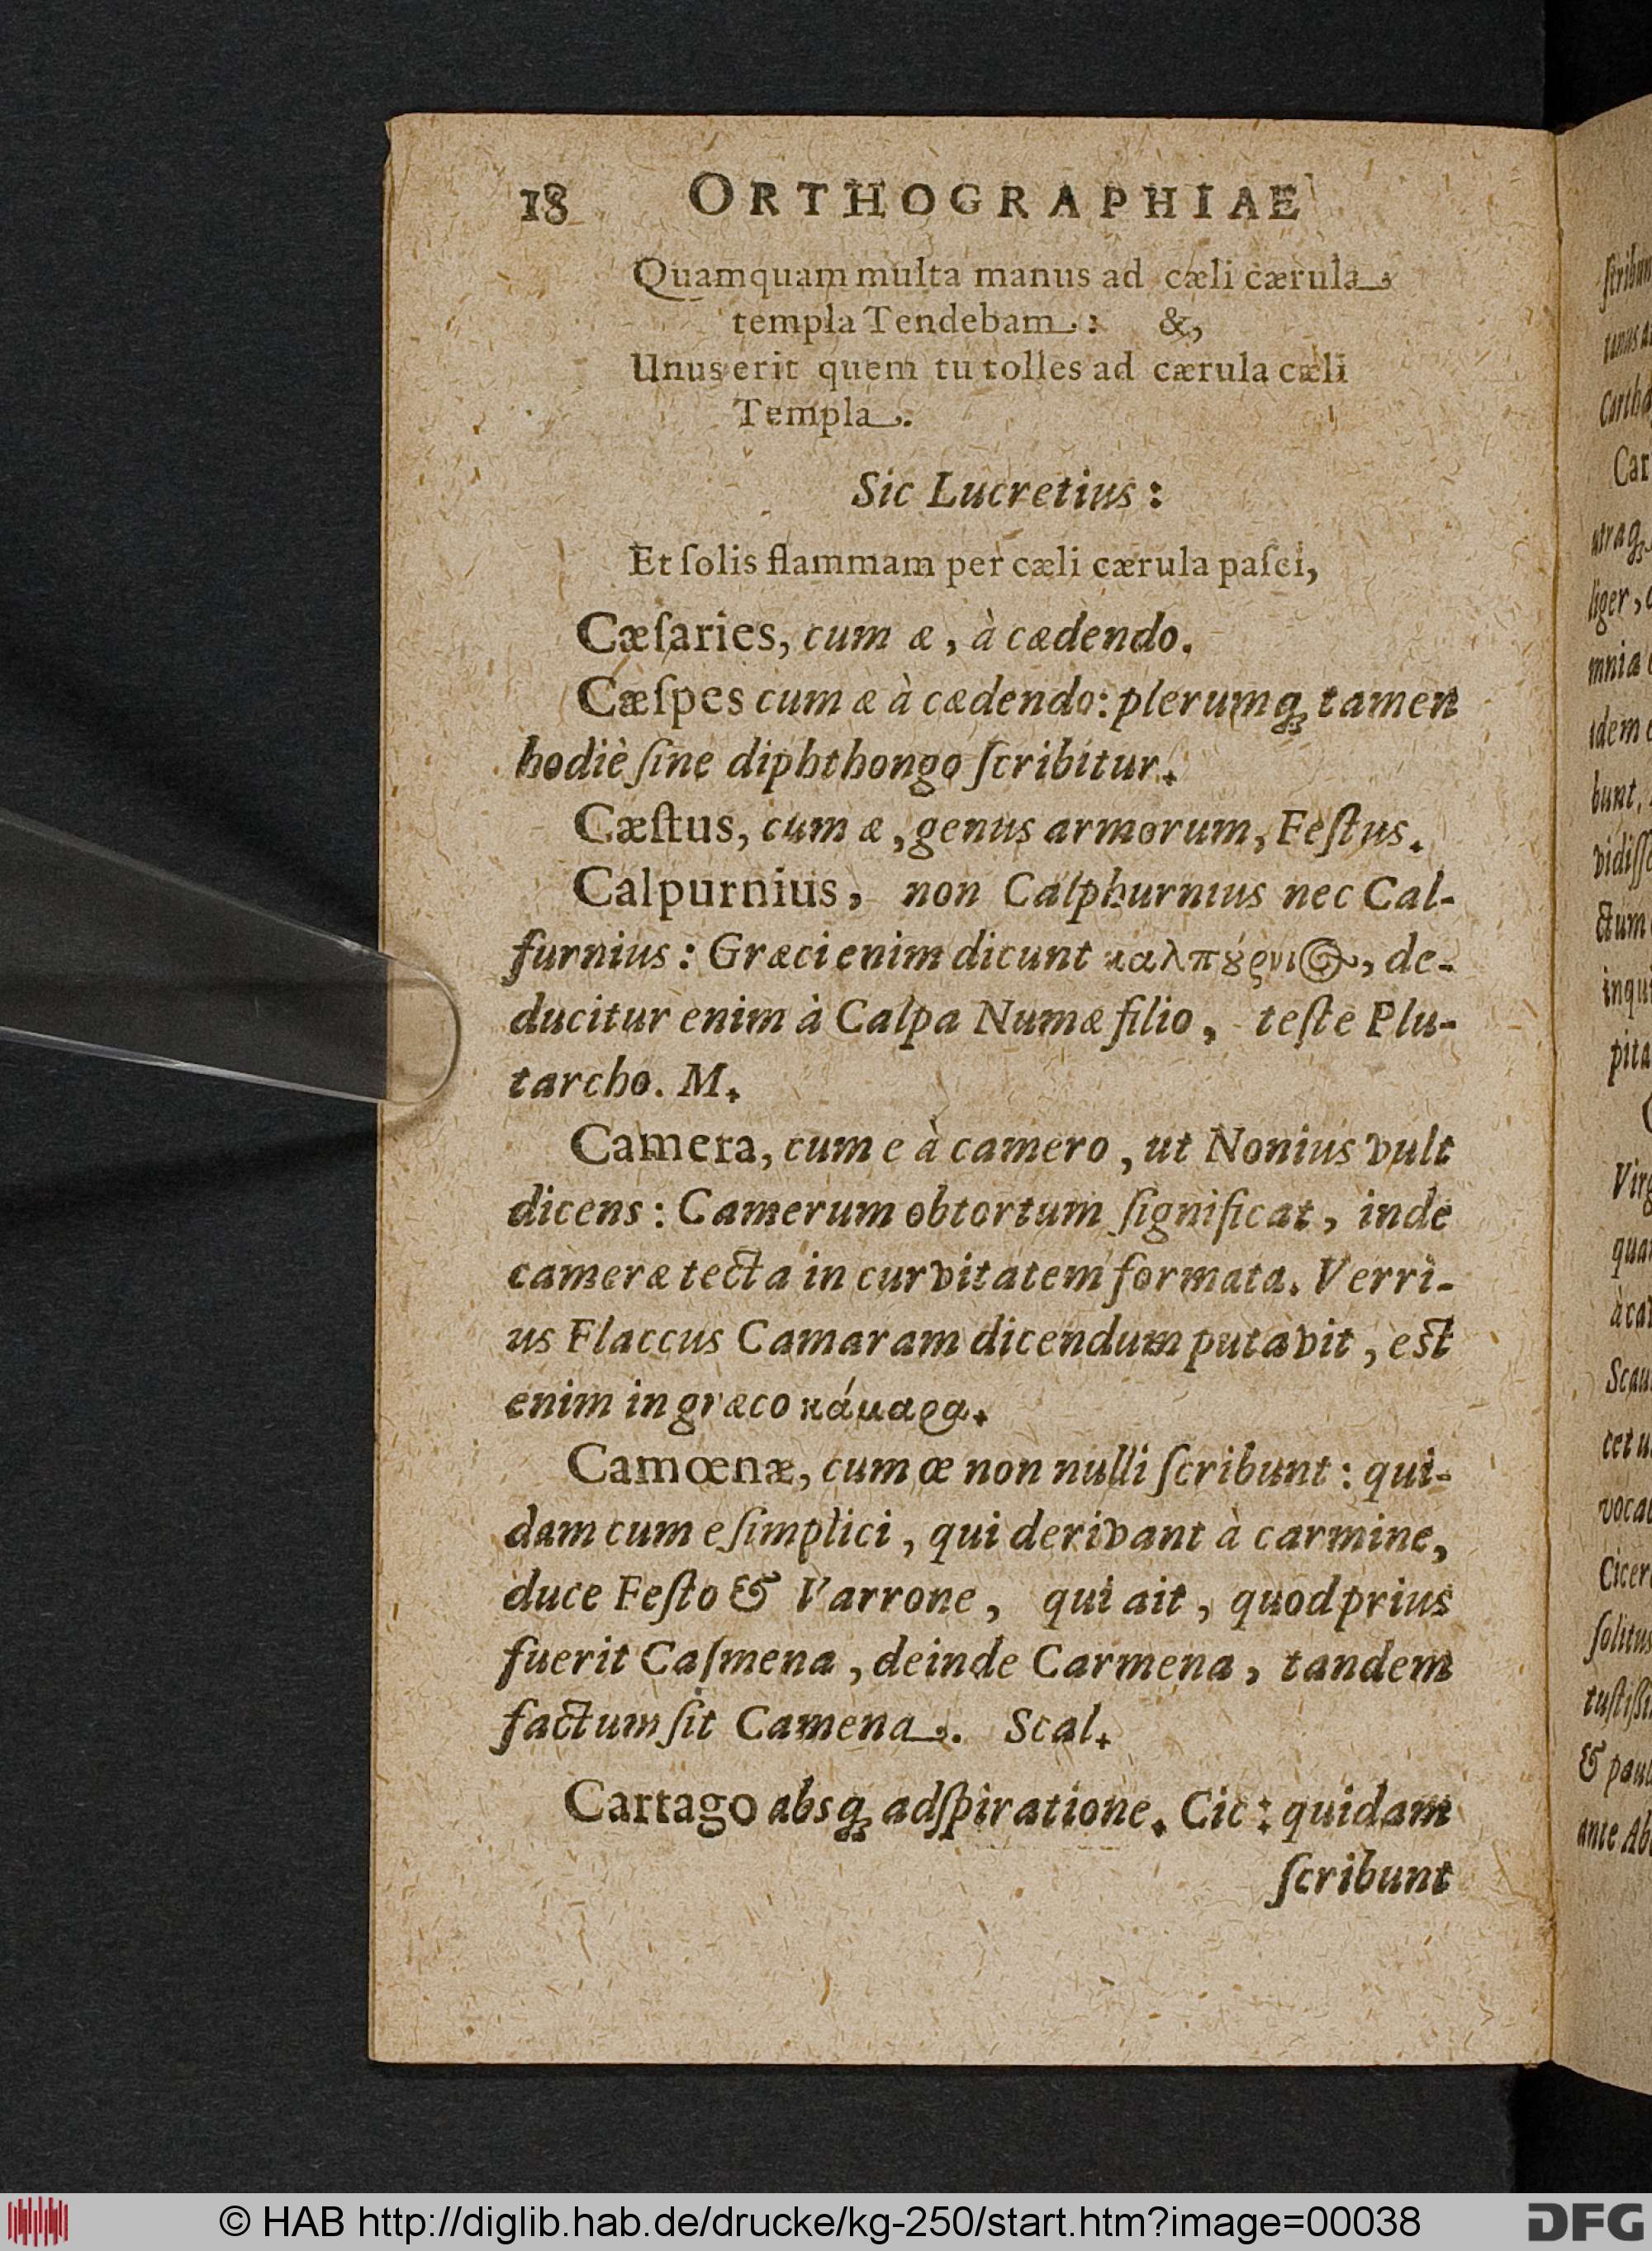 18 ORTHOGRAPHIAE
Quamquam multa manus ad cæli cærula
templa Tendebam: &,
Unus erit quem tu tolles ad cærula cæli
Templa.
Sic Lucretius:
Et ſolis flammam per cæli cærula paſci,
Cæſaries, cum æ, à cædendo.
Cæſpes cum æ à cædendo: plerumq́; tamen
hodiè ſine diphthongo ſcribitur.
Cæſtus, cum æ, genus armorum, Feſtus.
Calpurnius, non Calphurnius nec Cal-
furnius: Græci enim dicunt καλπȣ́ρνιος, de-
ducitur enim à Calpa Numæ filio, teſte Plu-
tarcho. M.
Camera, cum e à camero, ut Nonius vult
dicens: Camerum obtortum ſignificat, inde
cameræ tecta in curvitatem formata. Verri-
us Flaccus Camaram dicendum putavit, eſt
enim in græco κάμαρα.
Camœnæ, cum œ non nulli ſcribunt: qui-
dam cum e ſimplici, qui derivant à carmine,
duce Feſto & Varrone, qui ait, quod prius
fuerit Caſmena, deinde Carmena, tandem
factum ſit Camena. Scal.
Cartago absq; adſpiratione. Cic: quidam
ſcribunt
© HAB http://diglib.hab.de/drucke/kg-250/start.htm?image=00038
DFG